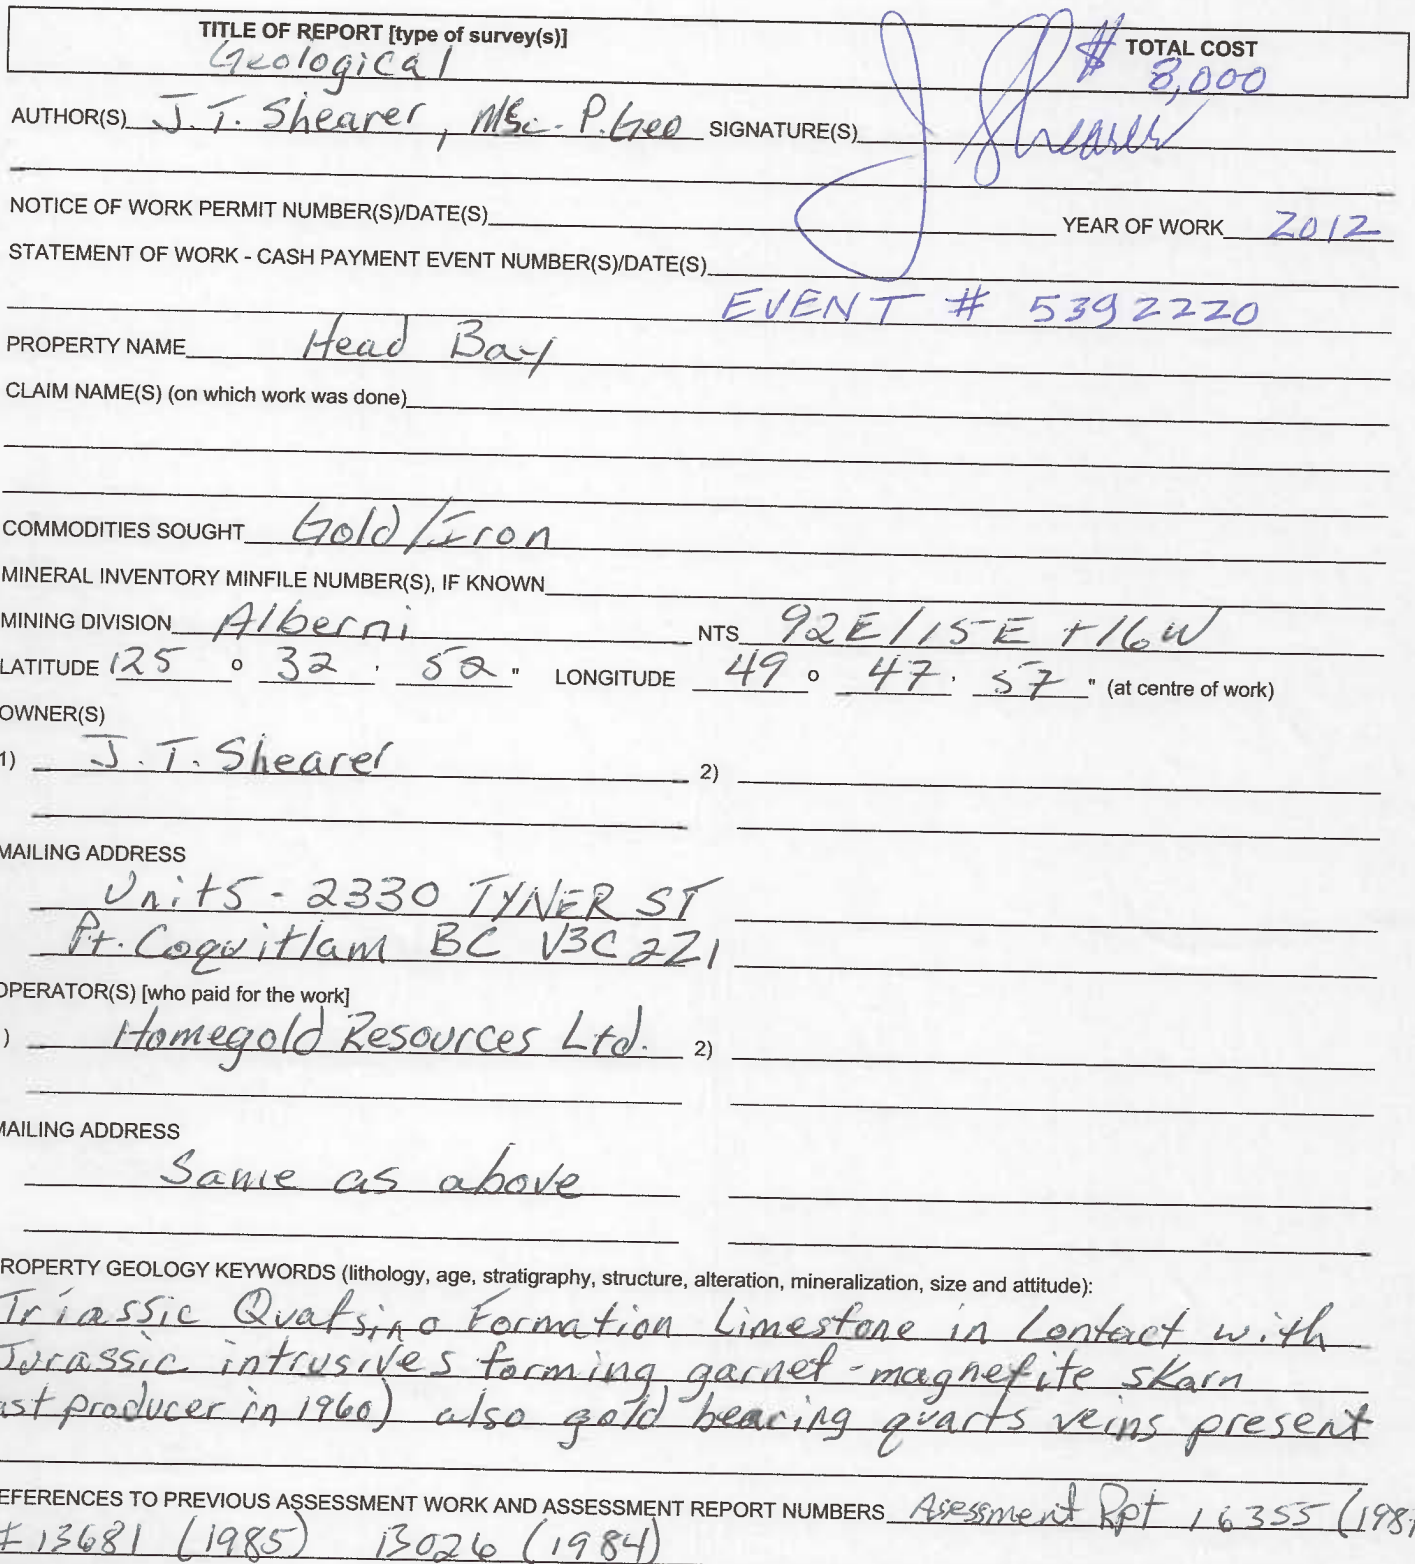 TITLE OF REPORT [type of survey(s)] TOTAL COST
Geological $ 8,000
AUTHOR(S) J.T. Shearer, MSc. P.Geo SIGNATURE(S) J Shearer
NOTICE OF WORK PERMIT NUMBER(S)/DATE(S) YEAR OF WORK 2012
STATEMENT OF WORK - CASH PAYMENT EVENT NUMBER(S)/DATE(S)
EVENT # 5392220
PROPERTY NAME Head Bay
CLAIM NAME(S) (on which work was done)
COMMODITIES SOUGHT Gold/Iron
MINERAL INVENTORY MINFILE NUMBER(S), IF KNOWN
MINING DIVISION Alberni NTS 92E/15E +16W
LATITUDE 125 ° 32 ' 52 " LONGITUDE 49 ° 47 ' 57 " (at centre of work)
OWNER(S)
1) J.T. Shearer 2)
MAILING ADDRESS
Unit 5 - 2330 TYNER ST
Pt. Coquitlam BC V3C 2Z1
OPERATOR(S) [who paid for the work]
) Homegold Resources Ltd. 2)
MAILING ADDRESS
Same as above
ROPERTY GEOLOGY KEYWORDS (lithology, age, stratigraphy, structure, alteration, mineralization, size and attitude):
Triassic Quatsino Formation Limestone in Contact with
Jurassic intrusives forming garnet-magnetite skarn
ast producer in 1960) also gold bearing quarts veins present
EFERENCES TO PREVIOUS ASSESSMENT WORK AND ASSESSMENT REPORT NUMBERS Asessment Rpt 16355 (198
# 13681 (1985) 13026 (1984)